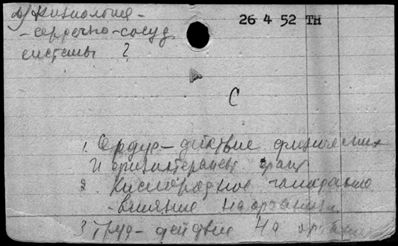 физиология -
- сердечно-сосуд
системы ?
26 4 52 TH
C
1. Сердце - действие физических
и
2. Кислородное голодание
- влияние на организм
3 Труд - действие на